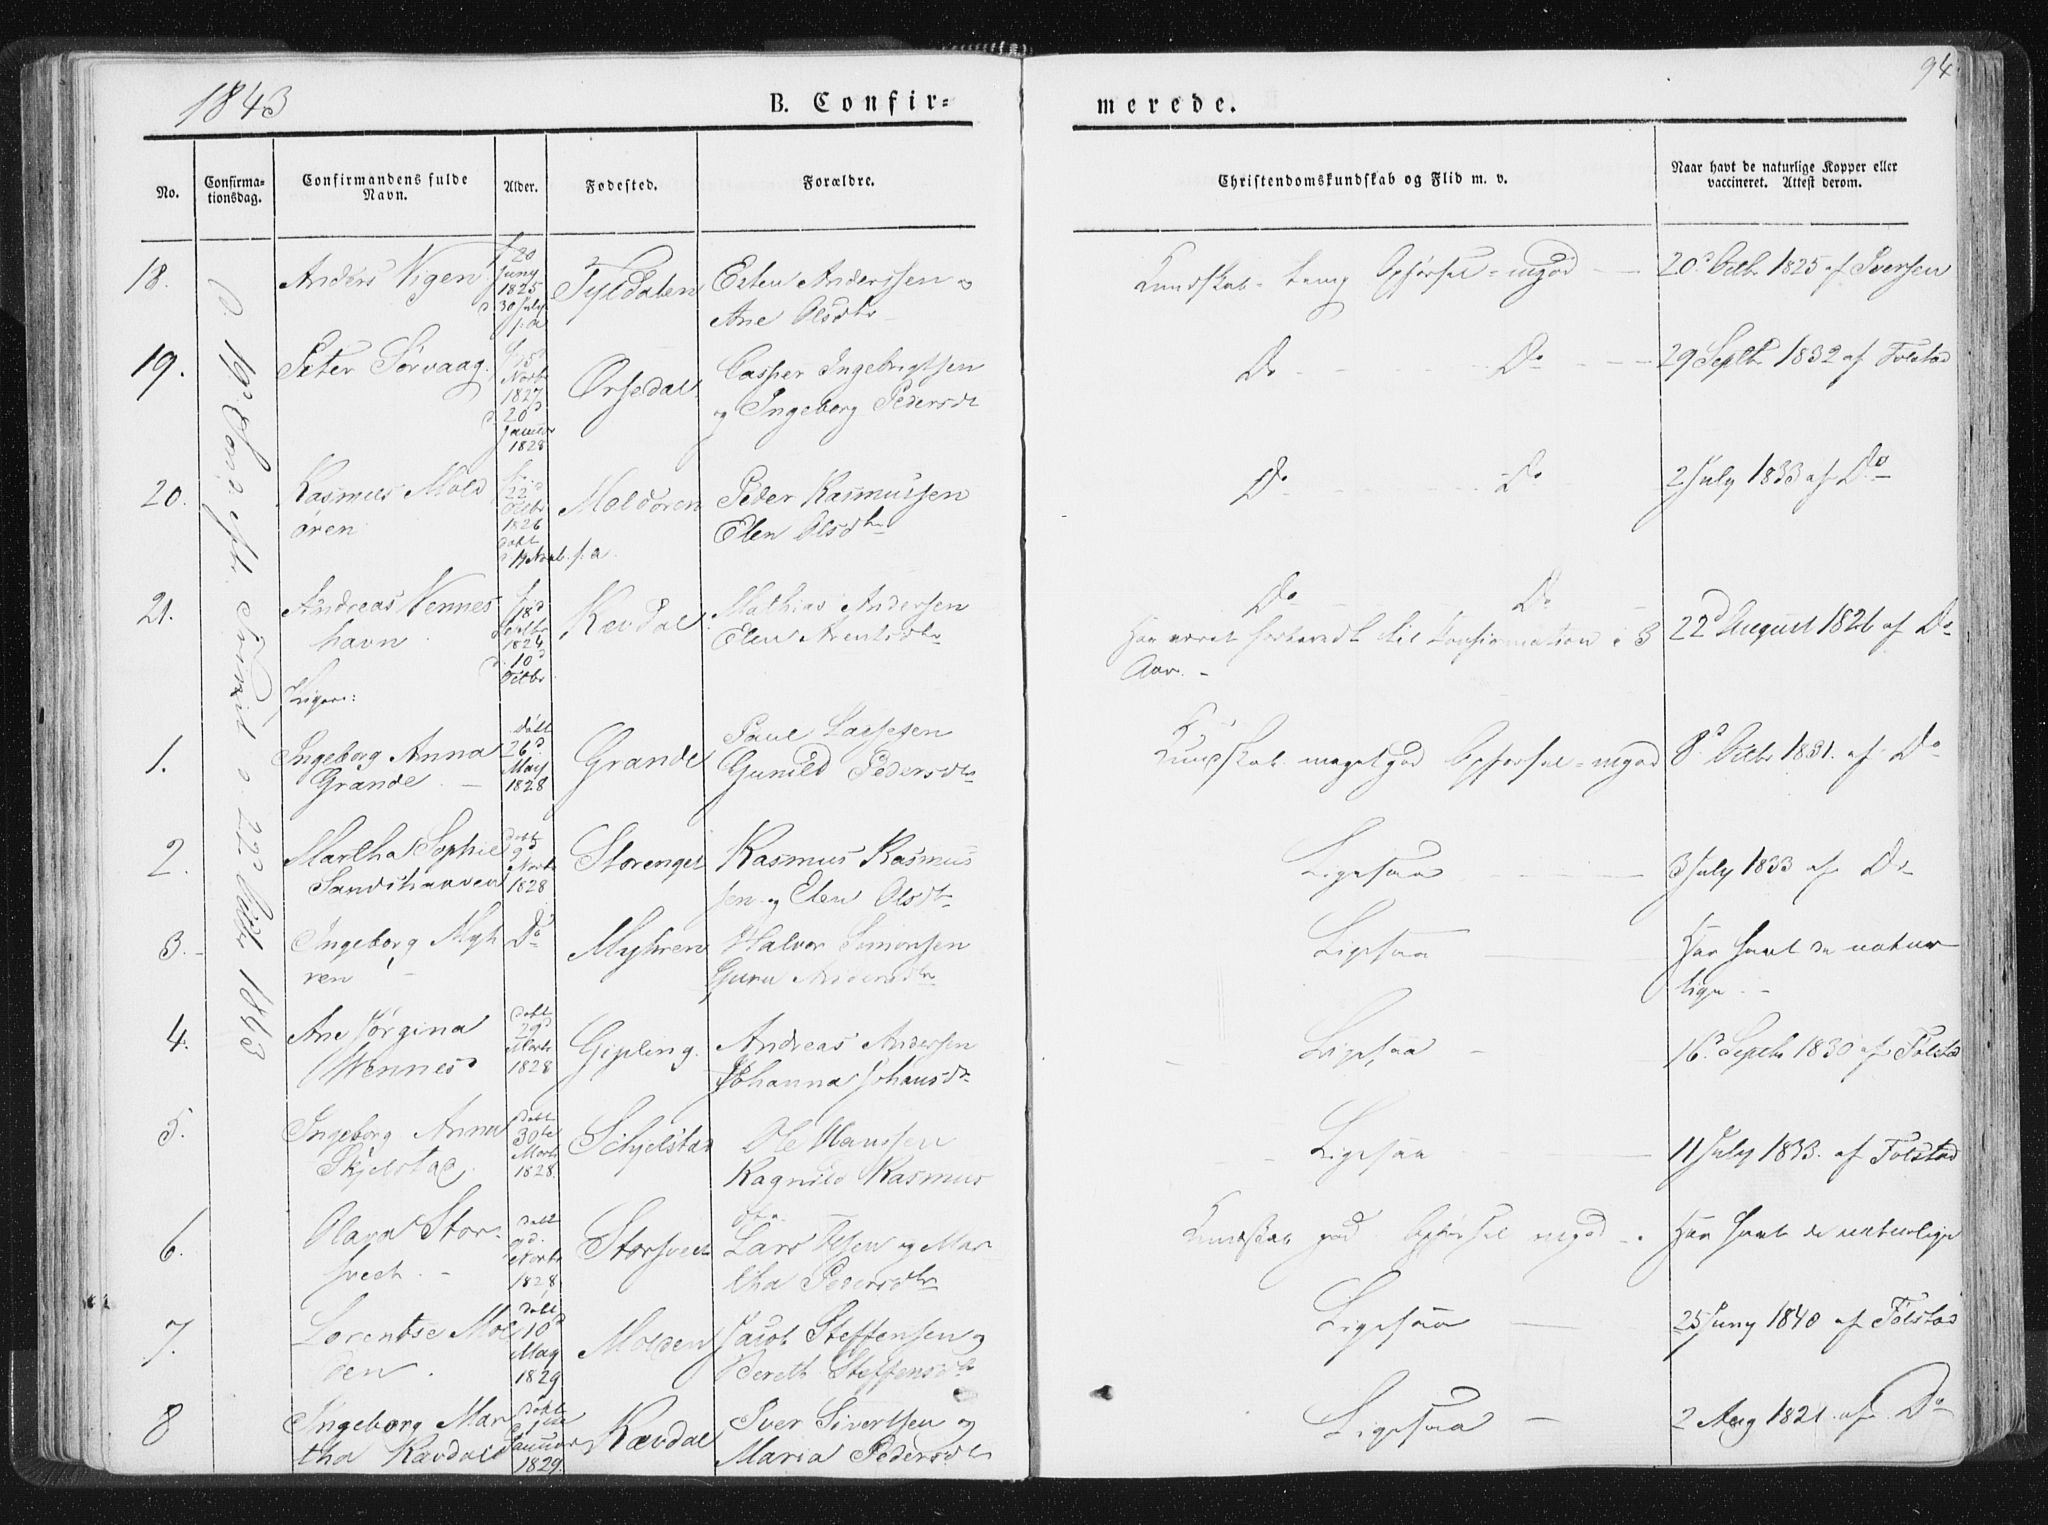 94
1843
B. Confir=
merede.
No.
Confirma-
tionsdag.
Confirmandens fulde
Navn.
Alder.
Fødested.
Forældre.
Christendomskundskab og Flid m. v.
Naar havt de naturlige Kopper eller
vaccineret. Attest derom.
18.
Anders Vigen
20
Juny
1825
d. 30 July
s. a
Tyldalen
Esten Anderssen og
Ane Olsdtr
Kundskab - temg Opførsel - mgod
20d Octbr 1825 af Iversen
19.
Peter Sørvaag.
15d
Novbr
1827
d. 20d
Januar
1828
Ørsedal
Casper Ingebrigtsen
og Ingeborg Pedersdt
Do
Do
29 Septbr 1832 af Folstad
20.
Rasmus Mold
øren
22d
Octbr
1826
døbt
d 19 Novb. s. a.
Moldøren
Peder Rasmussen
Elen Olsdtr
Do
Do
2 July 1833 af Do
21.
Andreas Vennes
havn
18d
Septbr
1824
d. 10d
Octbr
Kævdal
Mathias Andersen
Elen Arentsdtr
Do
Do
Har været forberedt til Confirmation i 3
Aar. -
22d August 1826 af Do
Piger:
1.
Ingeborg Anna
Grande. -
Døbt
26d
May
1828
Grande
Paul Lassesen
Gunild Pedersdtr
Kundskab meget god Opførsel - mgod
8d Octbr 1831. af Do
2.
Martha Sophie
Sandstranden
Døbt
9d
Novbr
1828
Storenget
Rasmus Rasmus
sen og Elen Olsdtr
Ligesaa
3 July 1833 af Do
3.
Ingeborg Myh
ren -
Do
Myhren
Halvor Simonsen
Guru Andersdtr
Ligesaa
Har havt de natur
lige -
4.
Ane Jørgina
Wennes
Døbt
29d
Martz
1828
Gipling.
Andreas Andersen
Johanna Johansdtr
Ligesaa
16d Septbr 1830 af Folstad
5.
Ingeborg Anna
Skjelstad.
Døbt
30te
Martz
1828.
Schjelstad
Ole Hanssen
Ragnild Rasmus
dtr.
Ligesaa
11 July 1833. af Folstad
6.
Olava Stor-
sveet. -
Døbt
9d.
Novbr
1828.
Storsveet
Lars Olsen og Mar
tha Pedersdtr
Kundskab god Opførsel mgod
Har havt de naturlige
7.
Lorentse Mol
den.
Døbt
10d
May
1829
Molden
Jacob Steffensen og
Bereth Steffensdtr
Ligesaa
25 Juny 1840 af Folstad
8
Ingeborg Mar
tha Kævdal
Døbt
Januar
1829.
Kævdal
Iver Sivertsen og
Maria Pedersdtr
Ligesaa
2 Aug 1821. af Do
d. 19d Sønd. eftr. Trinit. d 22d Octbr 1843